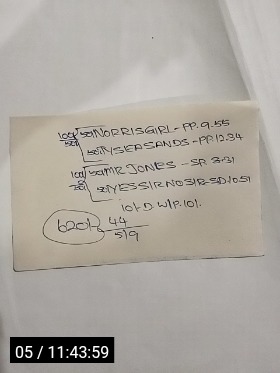 10/- 50/- NORRIS GIRL - PP. 9.55
50/- 50/- TYSEA SANDS - PP. 12.34
10/- 50/- MR JONES - SP. 3.31
50/- YES SIR NO SIR - SD. 10.51
10/- D W/P. 10/-
620/- 44
519
05 / 11:43:59